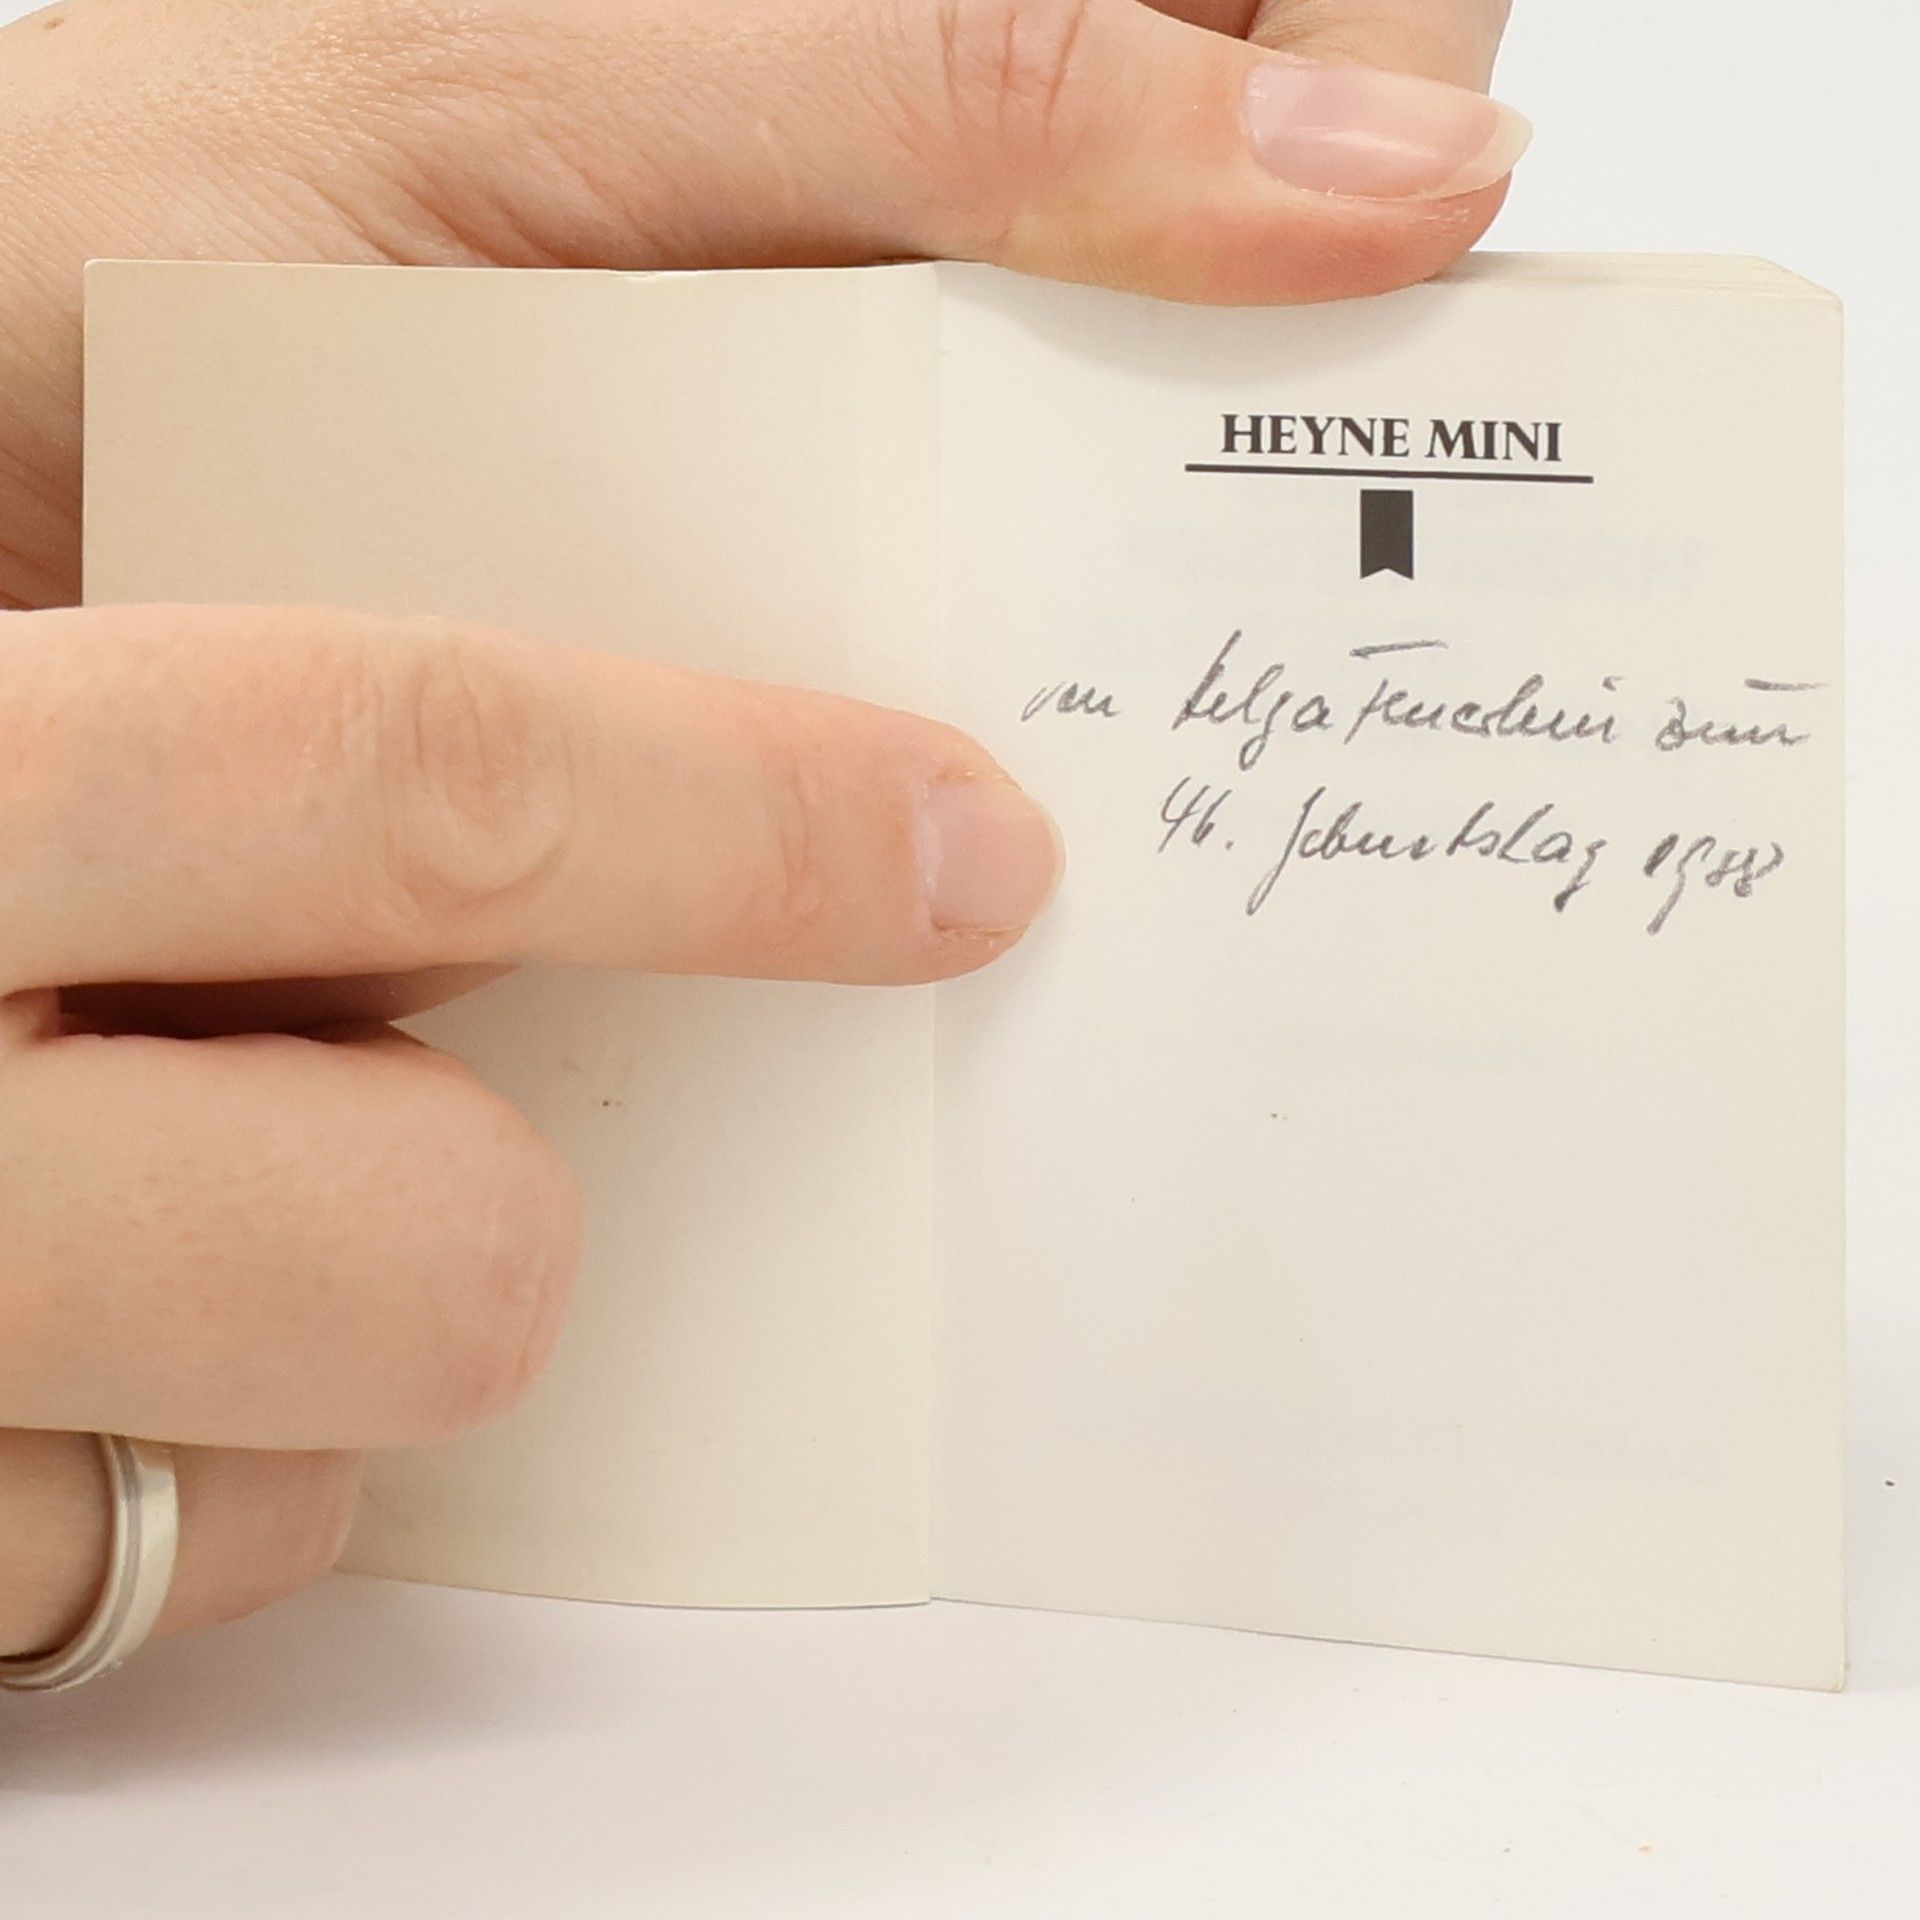 HEYNE MINI
von Helga zum
46. Geburtstag 1988